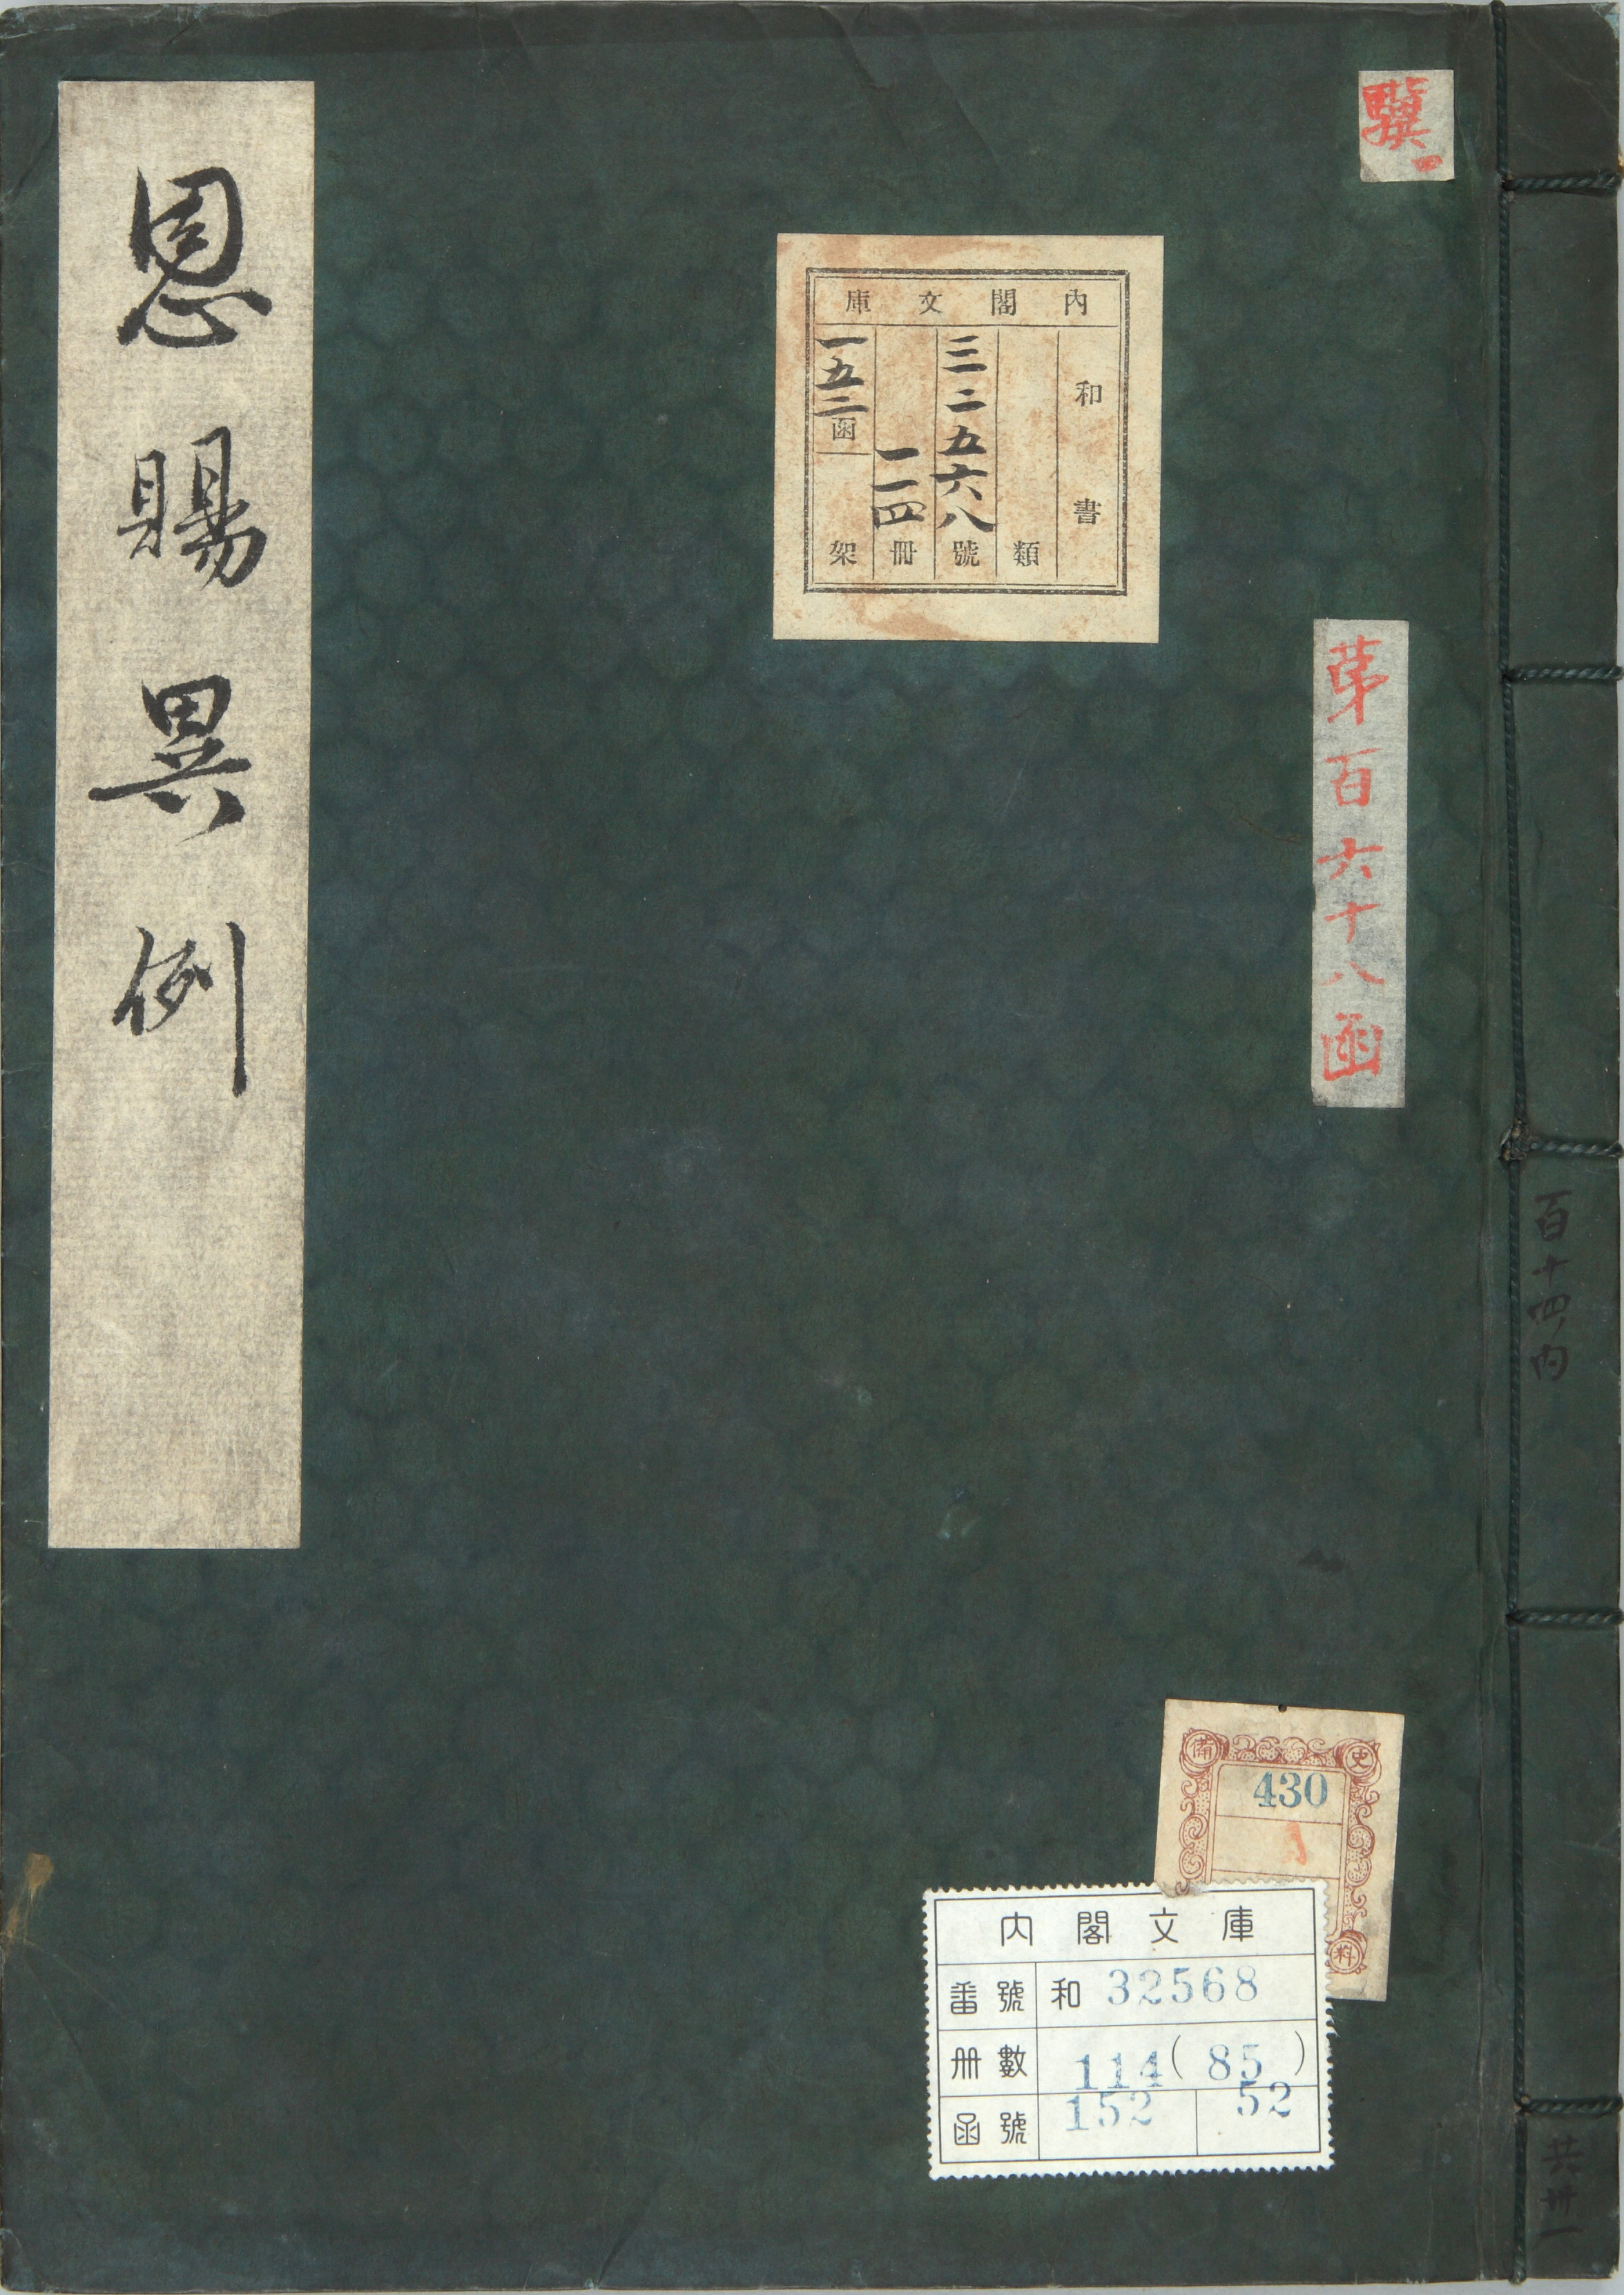 驥一
第百六十八函
內閣文庫
和書
類
三二五六八號
一一四冊
一五二函
架
恩賜異例
百十四内
史
備
料
430
内閣文庫
番號 和 32568
冊數 114(85)
函號 152 52
共卅一